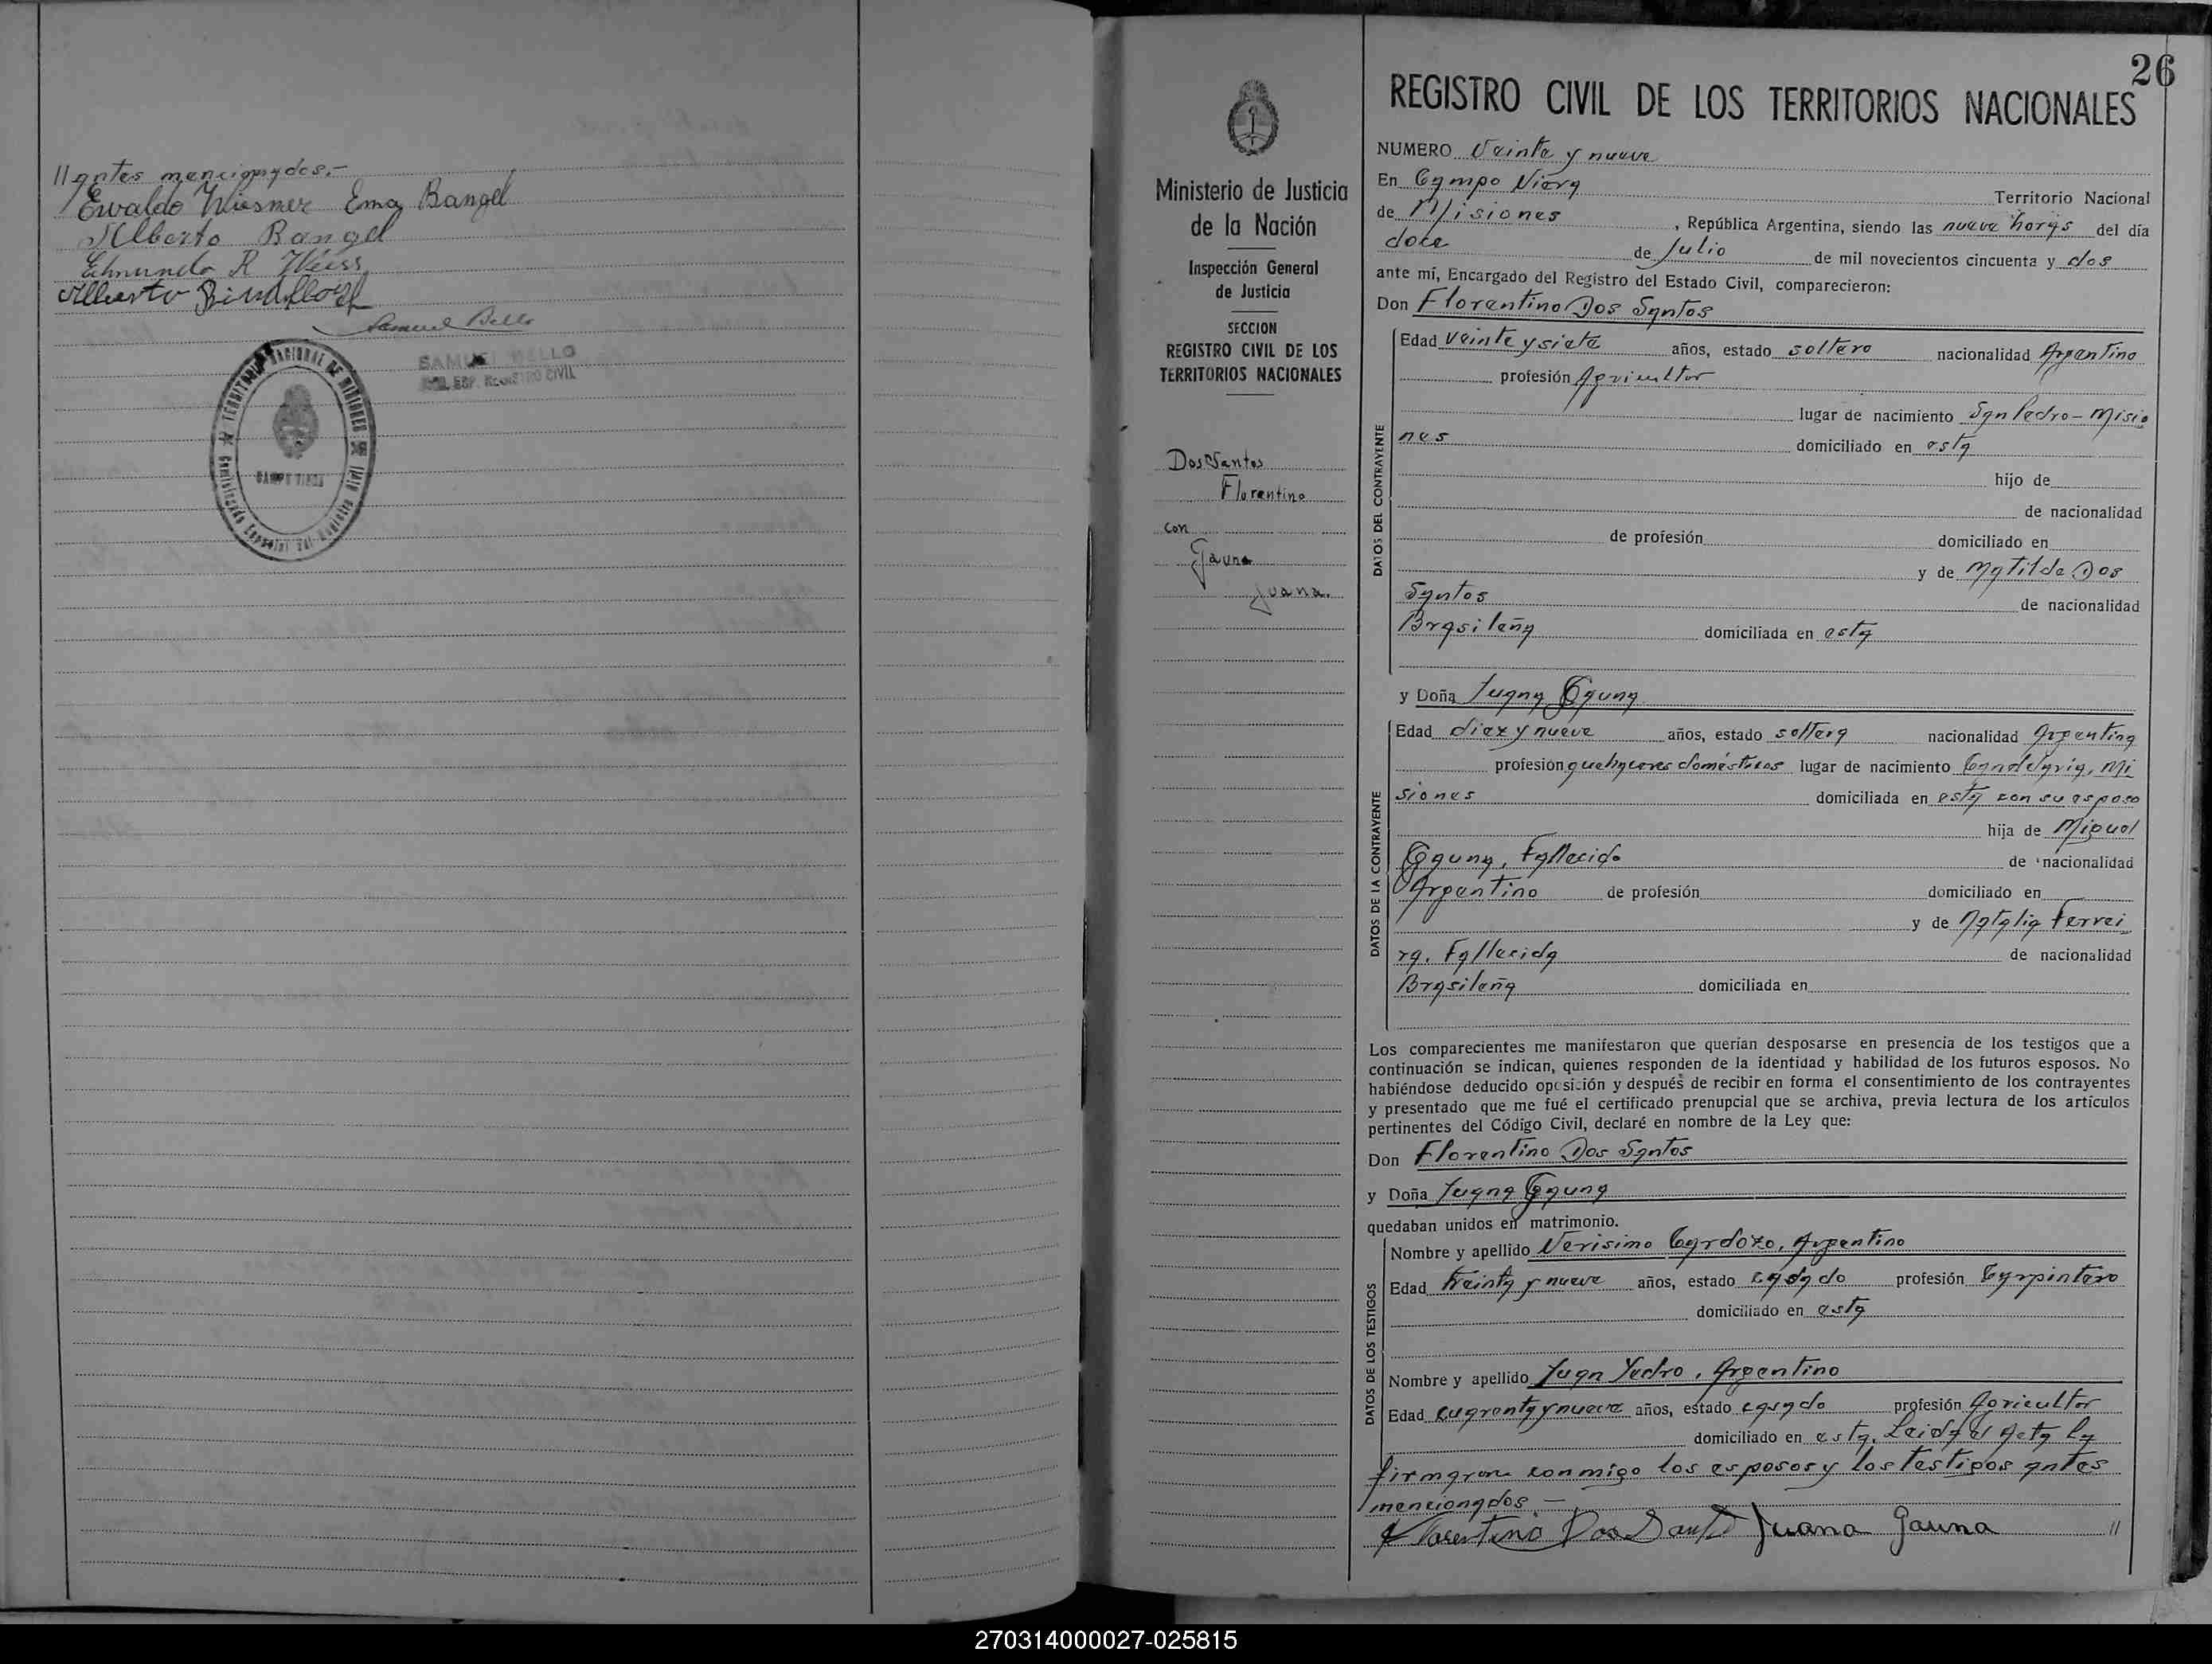 //antes mencionados.-
Ewaldo Wiesner Ema Bangel
Alberto Bangel
Edmundo R Weiss
Alberto
Samuel Bello
SAMUEL BELLO
ESP. REGISTRO CIVIL
TERRITORIO NACIONAL DE MISIONES
CAMPO VIERA
26
Ministerio de Justicia
de la Nación
Inspección General
de Justicia
SECCION
REGISTRO CIVIL DE LOS
TERRITORIOS NACIONALES
Dos Santos
Florentino
con
Gauna
Juana.
REGISTRO CIVIL DE LOS TERRITORIOS NACIONALES
NUMERO Veinte y nueve
En Campo Viera Territorio Nacional
de Misiones, República Argentina, siendo las nueve horas del día
doce de Julio de mil novecientos cincuenta y dos
ante mí, Encargado del Registro del Estado Civil, comparecieron:
Don Florentino Dos Santos
DATOS DEL CONTRAYENTE
Edad Veinte y siete años, estado soltero nacionalidad Argentino
profesión Agricultor
lugar de nacimiento San Pedro - Misio
nes domiciliado en esta
hijo de
de nacionalidad
de profesión domiciliado en
y de Matilde Dos
Santos de nacionalidad
Brasileña domiciliada en esta
y Doña Juana Gauna
DATOS DE LA CONTRAYENTE
Edad diez y nueve años, estado soltera nacionalidad Argentina
profesión quehaceres domésticos lugar de nacimiento Candelaria, Mi
siones domiciliada en esta con su esposo
hija de Miguel
Gauna, Fallecido de nacionalidad
Argentino de profesión domiciliado en
y de Natalia Ferrei
ra, Fallecida de nacionalidad
Brasileña domiciliada en
Los comparecientes me manifestaron que querían desposarse en presencia de los testigos que a
continuación se indican, quienes responden de la identidad y habilidad de los futuros esposos. No
habiéndose deducido oposición y después de recibir en forma el consentimiento de los contrayentes
y presentado que me fué el certificado prenupcial que se archiva, previa lectura de los artículos
pertinentes del Código Civil, declaré en nombre de la Ley que:
Don Florentino Dos Santos
y Doña Juana Gauna
quedaban unidos en matrimonio.
DATOS DE LOS TESTIGOS
Nombre y apellido Verisimo Cardozo, Argentino
Edad treinta y nueve años, estado casado profesión Carpintero
domiciliado en esta
Nombre y apellido Juan Yedro, Argentino
Edad cuarenta y nueve años, estado casado profesión Agricultor
domiciliado en esta. Leida el Acta la
firmaron conmigo los esposos y los testigos antes
mencionados -
Florentino Dos Santos Juana Gauna //
270314000027-025815